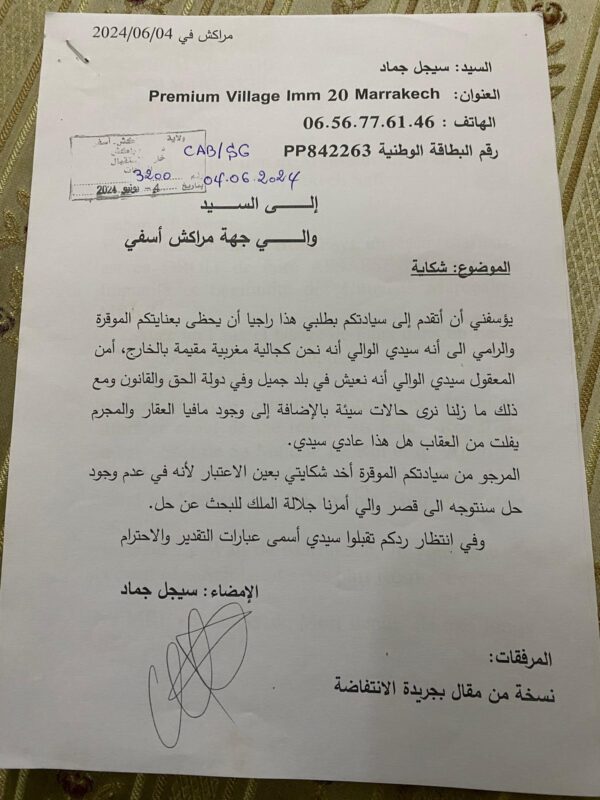 مراكش في 2024/06/04
السيد: سيجل جماد
العنوان: Premium Village Imm 20 Marrakech
الهاتف : 06.56.77.61.46
رقم البطاقة الوطنية PP842263
ولاية
CAB/SG
3200
04.06.2024
بتاريخ
إلـــى الســـيد
والـــي جهة مراكش أسفي
الموضوع: شكاية
يؤسفني أن أتقدم إلى سيادتكم بطلبي هذا راجيا أن يحظى بعنايتكم الموقرة
والرامي الى أنه سيدي الوالي أنه نحن كجالية مغربية مقيمة بالخارج، أمن
المعقول سيدي الوالي أنه نعيش في بلد جميل وفي دولة الحق والقانون ومع
ذلك ما زلنا نرى حالات سيئة بالإضافة إلى وجود مافيا العقار والمجرم
يفلت من العقاب هل هذا عادي سيدي.
المرجو من سيادتكم الموقرة أخد شكايتي بعين الاعتبار لأنه في عدم وجود
حل سنتوجه الى قصر والي أمرنا جلالة الملك للبحث عن حل.
وفي إنتظار ردكم تقبلوا سيدي أسمى عبارات التقدير والاحترام
الإمضاء: سيجل جماد
المرفقات:
نسخة من مقال بجريدة الانتفاضة